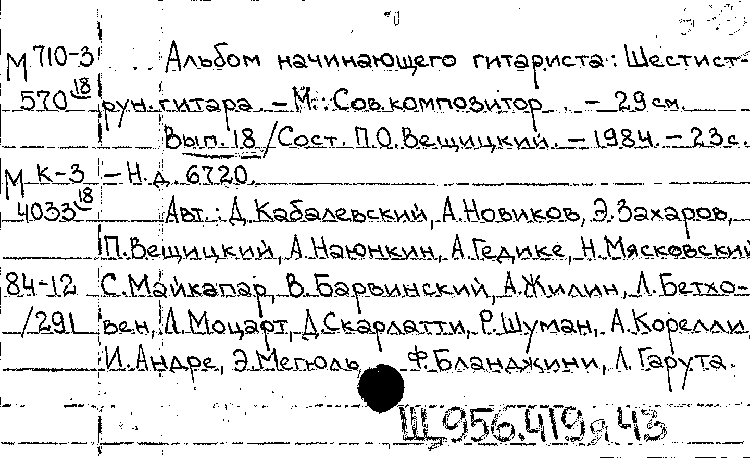 М 710-3 Альбом начинающего гитариста: Шестист-
570 18 рун. гитара. - М.: Сов. композитор. - 29 см.
Вып. 18 / Сост. П.О. Вещицкий. - 1984. - 23 с.
М К-3 - Н.д. 6720.
4033 18 Авт.: Д. Кабалевский, А. Новиков, Э. Захаров,
П. Вещицкий, А. Наюнкин, А. Гедике, Н. Мясковский
84-12 С. Майкапар, В. Барвинский, А. Жилин, Л. Бетхо-
/291 вен, Л. Моцарт, Д. Скарлатти, Р. Шуман, А. Корелли,
И. Андре, Э. Мегюль, Ф. Бланджини, Л. Гарута.
Щ956.419я43